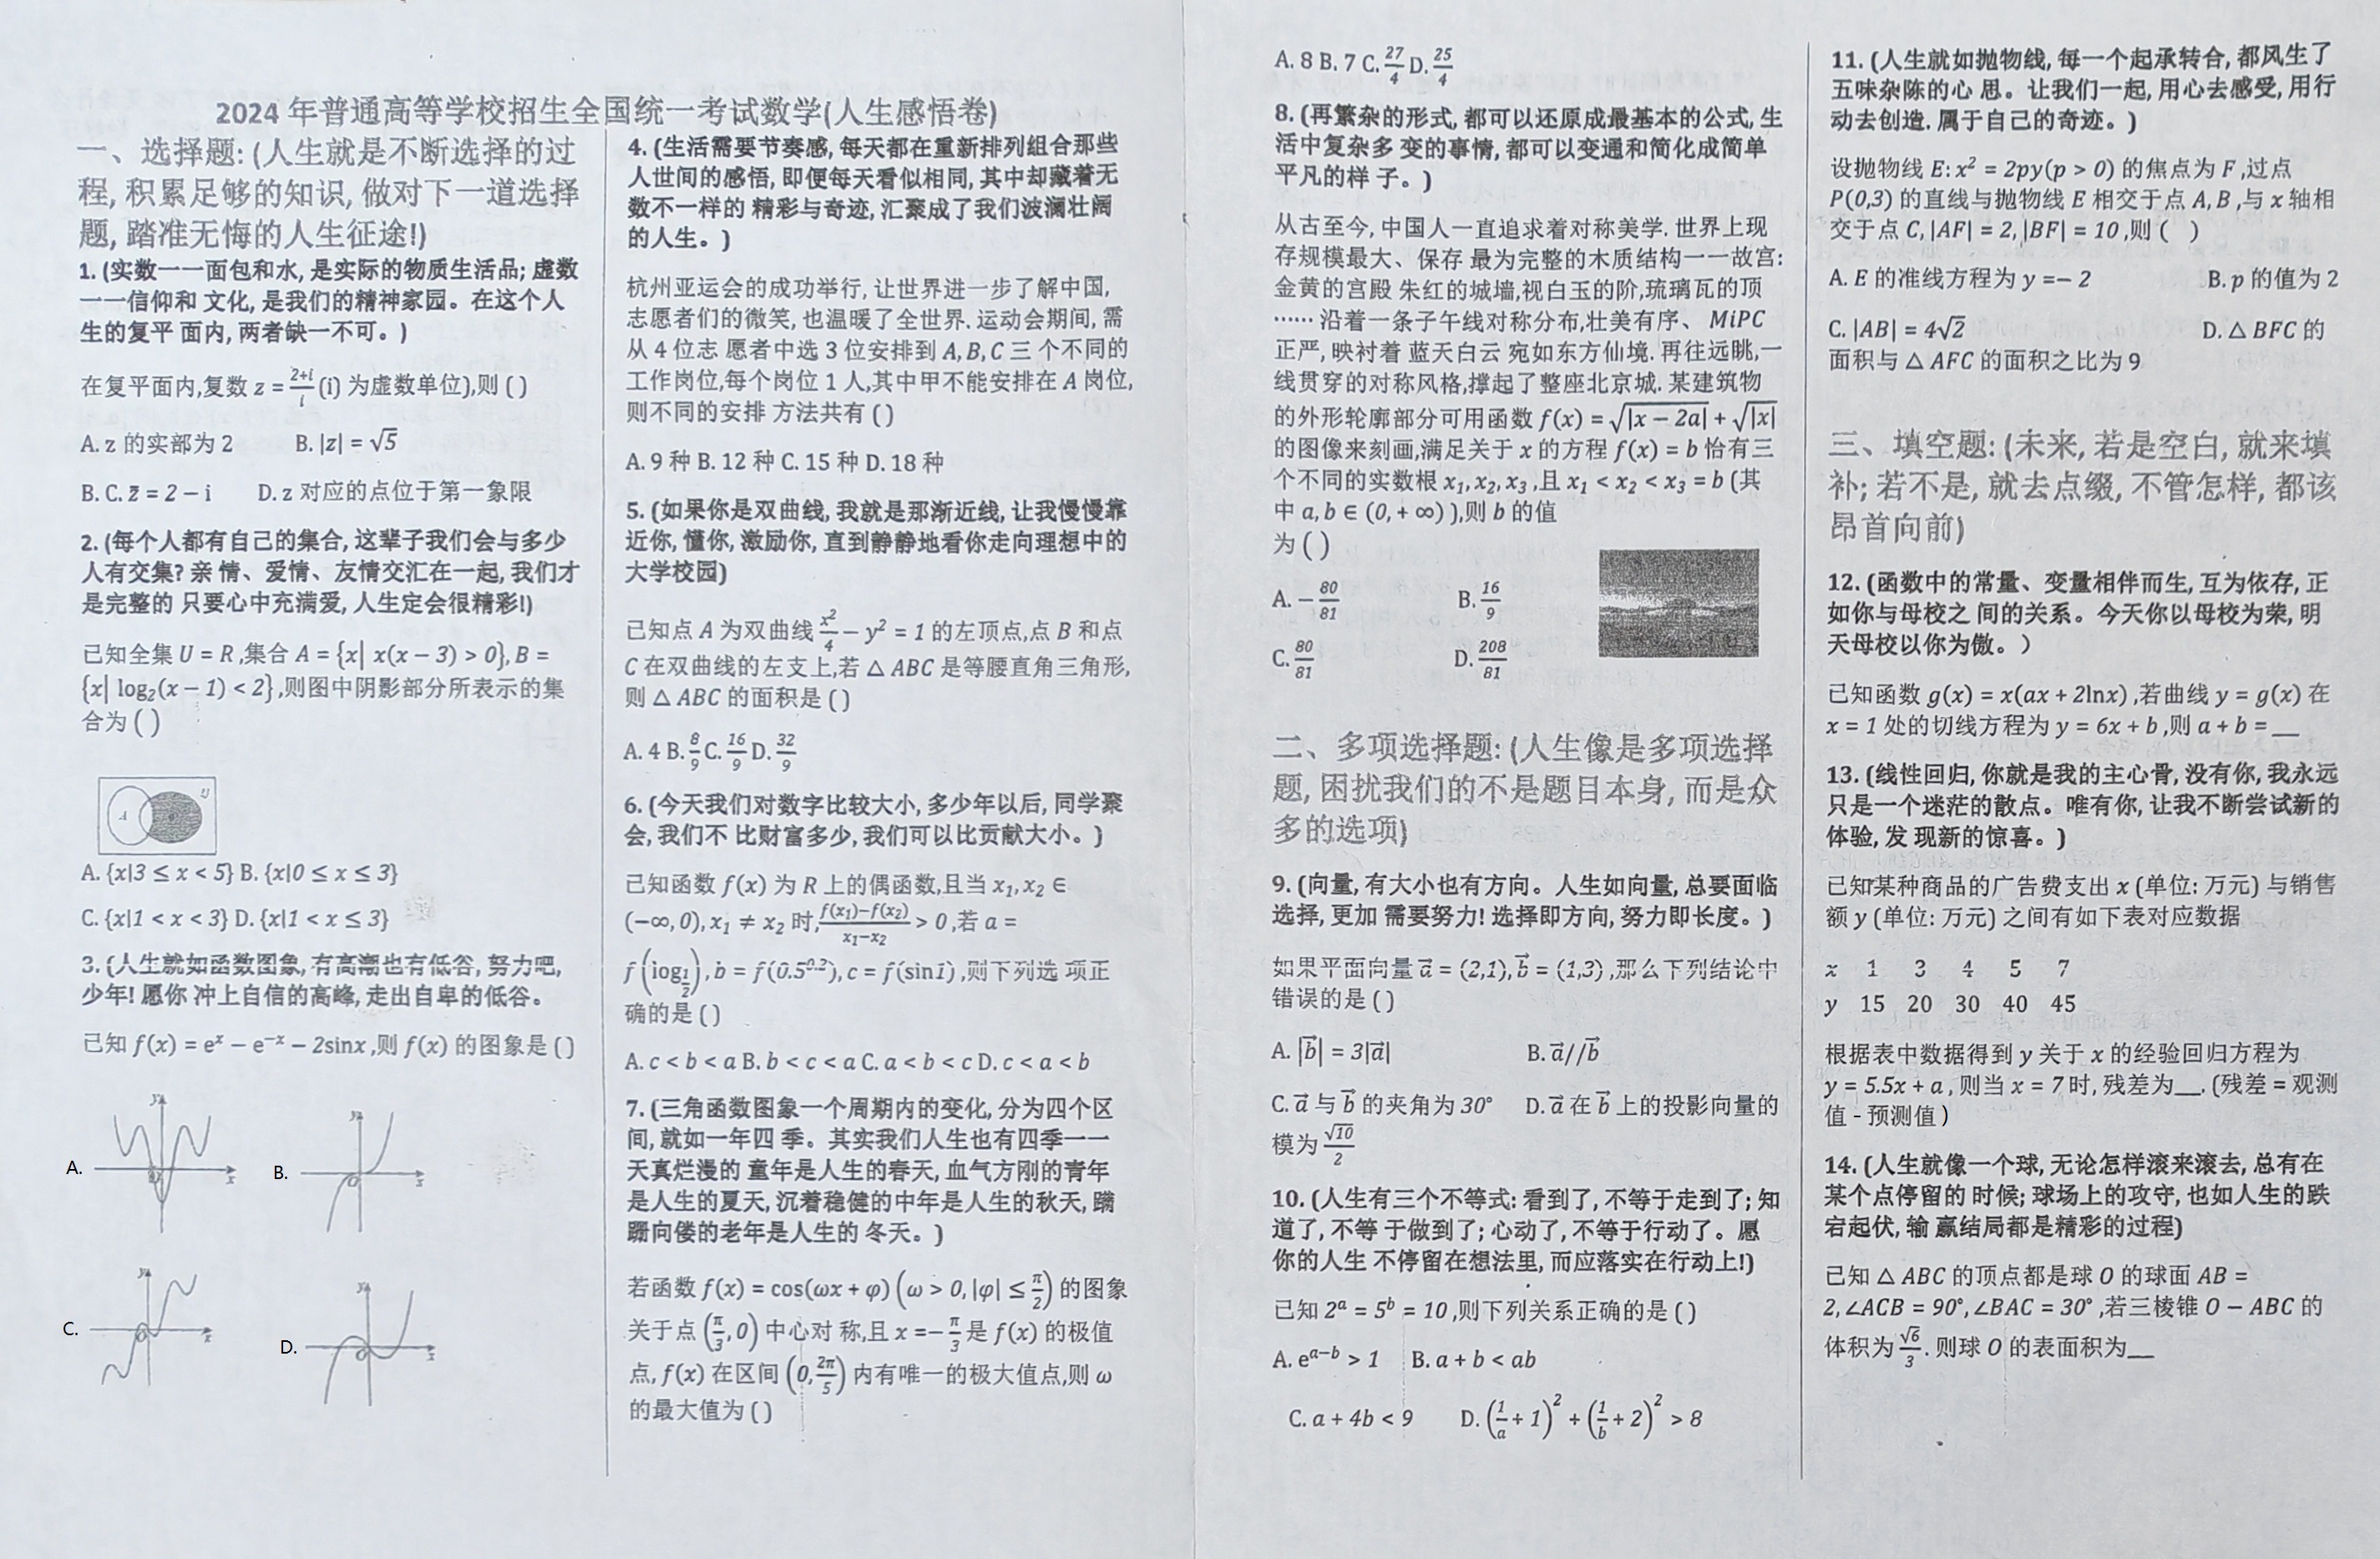 2024 年普通高等学校招生全国统一考试数学(人生感悟卷)
一、选择题: (人生就是不断选择的过
程, 积累足够的知识, 做对下一道选择
题, 踏准无悔的人生征途!)
1. (实数一一面包和水, 是实际的物质生活品; 虚数
一一信仰和 文化, 是我们的精神家园。在这个人
生的复平 面内, 两者缺一不可。)
在复平面内,复数 z = (2+i)/i (i) 为虚数单位),则 ( )
A. z 的实部为 2 B. |z| = √5
B. C. z̄ = 2 − i D. z 对应的点位于第一象限
2. (每个人都有自己的集合, 这辈子我们会与多少
人有交集? 亲 情、爱情、友情交汇在一起, 我们才
是完整的 只要心中充满爱, 人生定会很精彩!)
已知全集 U = R ,集合 A = {x| x(x − 3) > 0}, B =
{x| log₂(x − 1) < 2} ,则图中阴影部分所表示的集
合为 ( )
A
U
A. {x|3 ≤ x < 5} B. {x|0 ≤ x ≤ 3}
C. {x|1 < x < 3} D. {x|1 < x ≤ 3}
3. (人生就如函数图象, 有高潮也有低谷, 努力吧,
少年! 愿你 冲上自信的高峰, 走出自卑的低谷。
已知 f(x) = eˣ − e⁻ˣ − 2sinx ,则 f(x) 的图象是 ( )
A. y x B. y O x
C. y O x D. y O x
4. (生活需要节奏感, 每天都在重新排列组合那些
人世间的感悟, 即便每天看似相同, 其中却藏着无
数不一样的 精彩与奇迹, 汇聚成了我们波澜壮阔
的人生。)
杭州亚运会的成功举行, 让世界进一步了解中国,
志愿者们的微笑, 也温暖了全世界. 运动会期间, 需
从 4 位志 愿者中选 3 位安排到 A, B, C 三 个不同的
工作岗位,每个岗位 1 人,其中甲不能安排在 A 岗位,
则不同的安排 方法共有 ( )
A. 9 种 B. 12 种 C. 15 种 D. 18 种
5. (如果你是双曲线, 我就是那渐近线, 让我慢慢靠
近你, 懂你, 激励你, 直到静静地看你走向理想中的
大学校园)
已知点 A 为双曲线 x²/4 − y² = 1 的左顶点,点 B 和点
C 在双曲线的左支上,若 △ ABC 是等腰直角三角形,
则 △ ABC 的面积是 ( )
A. 4 B. 8/9 C. 16/9 D. 32/9
6. (今天我们对数字比较大小, 多少年以后, 同学聚
会, 我们不 比财富多少, 我们可以比贡献大小。)
已知函数 f(x) 为 R 上的偶函数,且当 x₁, x₂ ∈
(−∞, 0), x₁ ≠ x₂ 时, (f(x₁)−f(x₂))/(x₁−x₂) > 0 ,若 a =
f(log_(1/2)), b = f(0.5^0.2), c = f(sin1) ,则下列选 项正
确的是 ( )
A. c < b < a B. b < c < a C. a < b < c D. c < a < b
7. (三角函数图象一个周期内的变化, 分为四个区
间, 就如一年四 季。其实我们人生也有四季一一
天真烂漫的 童年是人生的春天, 血气方刚的青年
是人生的夏天, 沉着稳健的中年是人生的秋天, 蹒
跚向偻的老年是人生的 冬天。)
若函数 f(x) = cos(ωx + φ) (ω > 0, |φ| ≤ π/2) 的图象
关于点 (π/3, 0) 中心对 称,且 x =− π/3 是 f(x) 的极值
点, f(x) 在区间 (0, 2π/5) 内有唯一的极大值点,则 ω
的最大值为 ( )
A. 8 B. 7 C. 27/4 D. 25/4
8. (再繁杂的形式, 都可以还原成最基本的公式, 生
活中复杂多 变的事情, 都可以变通和简化成简单
平凡的样 子。)
从古至今, 中国人一直追求着对称美学. 世界上现
存规模最大、保存 最为完整的木质结构一一故宫:
金黄的宫殿 朱红的城墙,视白玉的阶,琉璃瓦的顶
…… 沿着一条子午线对称分布,壮美有序、 MiPC
正严, 映衬着 蓝天白云 宛如东方仙境. 再往远眺,一
线贯穿的对称风格,撑起了整座北京城. 某建筑物
的外形轮廓部分可用函数 f(x) = √|x − 2a| + √|x|
的图像来刻画,满足关于 x 的方程 f(x) = b 恰有三
个不同的实数根 x₁, x₂, x₃ ,且 x₁ < x₂ < x₃ = b (其
中 a, b ∈ (0, + ∞) ),则 b 的值
为 ( )
A. − 80/81 B. 16/9
C. 80/81 D. 208/81
二、多项选择题: (人生像是多项选择
题, 困扰我们的不是题目本身, 而是众
多的选项)
9. (向量, 有大小也有方向。人生如向量, 总要面临
选择, 更加 需要努力! 选择即方向, 努力即长度。)
如果平面向量 a⃗ = (2,1), b⃗ = (1,3) ,那么下列结论中
错误的是 ( )
A. |b⃗| = 3|a⃗| B. a⃗//b⃗
C. a⃗ 与 b⃗ 的夹角为 30° D. a⃗ 在 b⃗ 上的投影向量的
模为 √10/2
10. (人生有三个不等式: 看到了, 不等于走到了; 知
道了, 不等 于做到了; 心动了, 不等于行动了。愿
你的人生 不停留在想法里, 而应落实在行动上!)
已知 2ᵃ = 5ᵇ = 10 ,则下列关系正确的是 ( )
A. eᵃ⁻ᵇ > 1 B. a + b < ab
C. a + 4b < 9 D. (1/a + 1)² + (1/b + 2)² > 8
11. (人生就如抛物线, 每一个起承转合, 都风生了
五味杂陈的心 思。让我们一起, 用心去感受, 用行
动去创造. 属于自己的奇迹。)
设抛物线 E: x² = 2py(p > 0) 的焦点为 F ,过点
P(0,3) 的直线与抛物线 E 相交于点 A, B ,与 x 轴相
交于点 C, |AF| = 2, |BF| = 10 ,则 ( )
A. E 的准线方程为 y =− 2 B. p 的值为 2
C. |AB| = 4√2 D. △ BFC 的
面积与 △ AFC 的面积之比为 9
三、填空题: (未来, 若是空白, 就来填
补; 若不是, 就去点缀, 不管怎样, 都该
昂首向前)
12. (函数中的常量、变量相伴而生, 互为依存, 正
如你与母校之 间的关系。今天你以母校为荣, 明
天母校以你为傲。)
已知函数 g(x) = x(ax + 2lnx) ,若曲线 y = g(x) 在
x = 1 处的切线方程为 y = 6x + b ,则 a + b = __
13. (线性回归, 你就是我的主心骨, 没有你, 我永远
只是一个迷茫的散点。唯有你, 让我不断尝试新的
体验, 发 现新的惊喜。)
已知某种商品的广告费支出 x (单位: 万元) 与销售
额 y (单位: 万元) 之间有如下表对应数据
x 1 3 4 5 7
y 15 20 30 40 45
根据表中数据得到 y 关于 x 的经验回归方程为
y = 5.5x + a , 则当 x = 7 时, 残差为__. (残差 = 观测
值 - 预测值 )
14. (人生就像一个球, 无论怎样滚来滚去, 总有在
某个点停留的 时候; 球场上的攻守, 也如人生的跌
宕起伏, 输 赢结局都是精彩的过程)
已知 △ ABC 的顶点都是球 O 的球面 AB =
2, ∠ACB = 90°, ∠BAC = 30° ,若三棱锥 O − ABC 的
体积为 √6/3 . 则球 O 的表面积为__